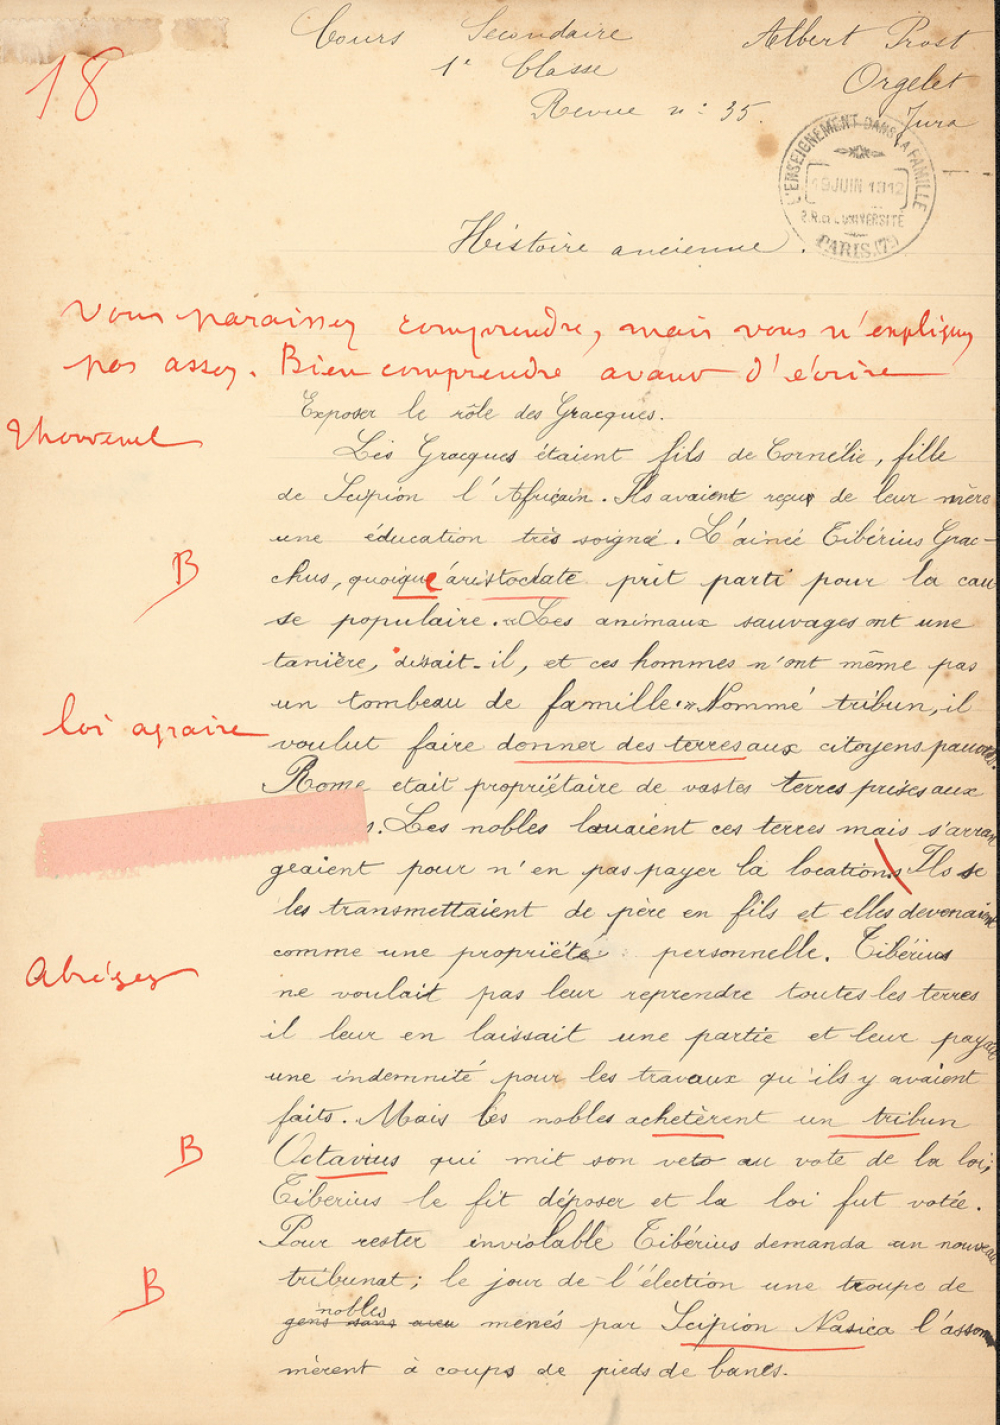 18
Cours Secondaire
1e Classe
Revue n: 35.
Albert Prost
Orgelet
Jura
L'ENSEIGNEMENT DANS LA FAMILLE
19 JUIN 1912
2.R. de l'UNIVERSITÉ
PARIS (7e)
Histoire ancienne.
Vous paraissez comprendre, mais vous n'expliquez
pas assez. Bien comprendre avant d'écrire
Exposer le rôle des Gracques.
Thouvenel
Les Gracques étaient fils de Cornélie, fille
de Scipion l'Africain. Ils avaient reçus de leur mère
une éducation très soigné. L'ainée Tibérius Grac-
B
chus, quoique aristocrate prit parti pour la cau
se populaire. "Les animaux sauvages ont une
tanière, disait-il, et ces hommes n'ont même pas
un tombeau de famille." Nommé tribun, il
loi agraire
voulut faire donner des terres aux citoyens pauvres.
Rome etait propriétaire de vastes terres prises aux
s. Les nobles louaient ces terres mais s'arran
geaient pour n'en pas payer la location. Ils se
les transmettaient de père en fils et elles devenaient
comme une propriété personnelle. Tibérius
Abrégez
ne voulait pas leur reprendre toutes les terres
il leur en laissait une partie et leur payait
une indemnité pour les travaux qu'ils y avaient
faits. Mais les nobles achetèrent un tribun
B
Octavius qui mit son veto au vote de la loi;
Tiberius le fit déposer et la loi fut votée.
Pour rester inviolable Tibérius demanda un nouveau
tribunat; le jour de l'élection une troupe de
B
nobles
gens sans aveu menés par Scipion Nasica l'assom
mèrent à coups de pieds de bancs.